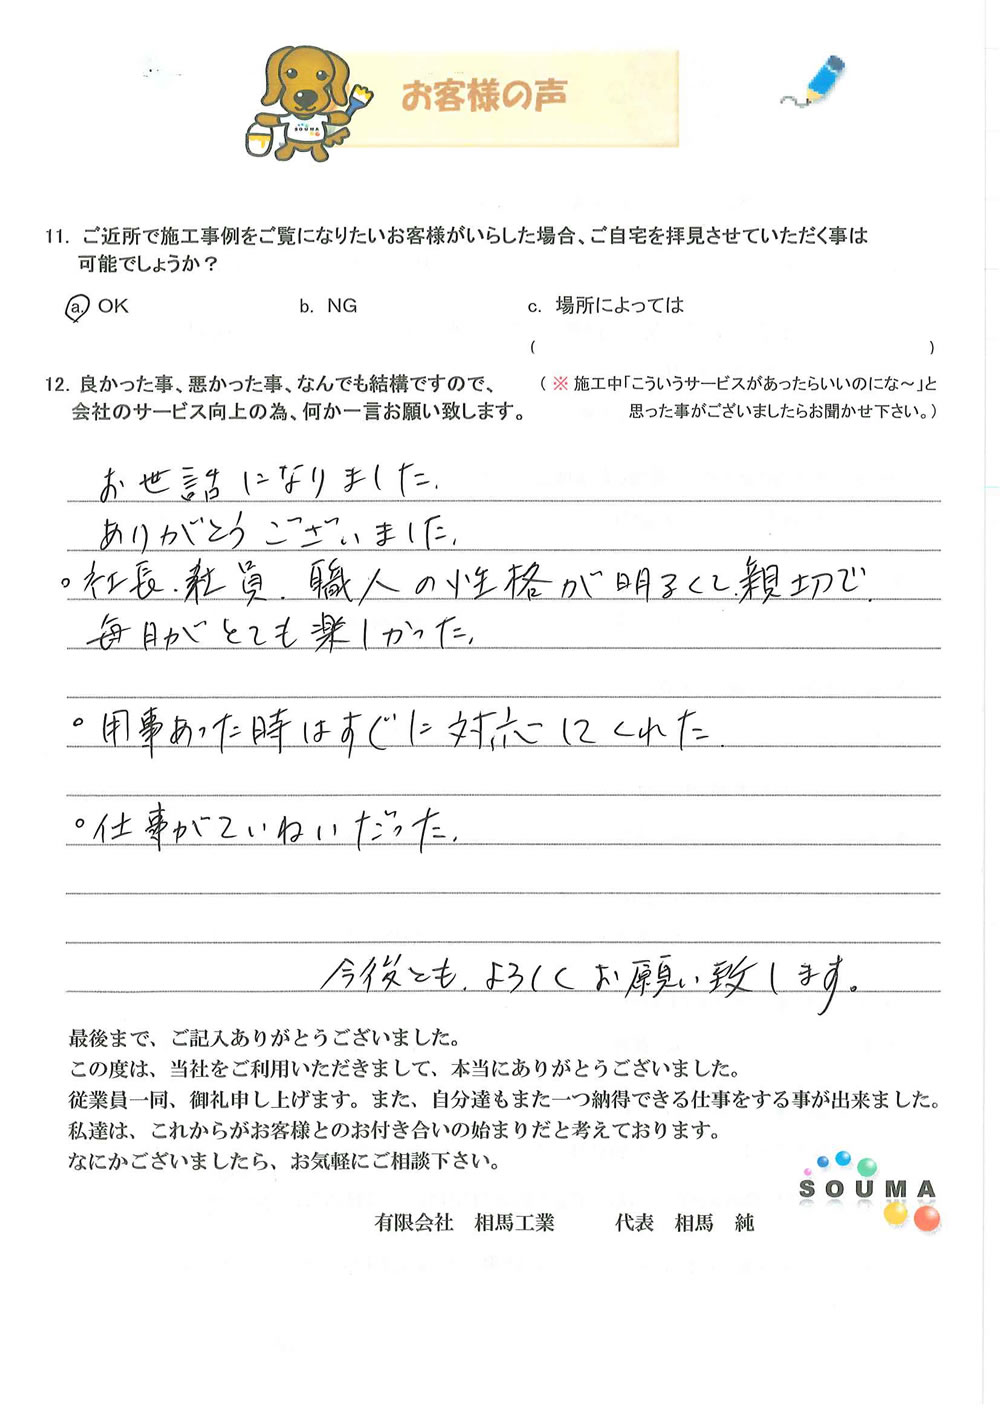 お客様の声
SOUMA
11. ご近所で施工事例をご覧になりたいお客様がいらした場合、ご自宅を拝見させていただく事は
可能でしょうか？
a. OK b. NG c. 場所によっては
( )
12. 良かった事、悪かった事、なんでも結構ですので、 （ ※ 施工中「こういうサービスがあったらいいのにな～」と
会社のサービス向上の為、何か一言お願い致します。 思った事がございましたらお聞かせ下さい。）
お世話になりました.
ありがとうございました.
○社長.社員.職人の性格が明るくて.親切で.
毎日がとても楽しかった.
○用事あった時はすぐに対応してくれた.
○仕事がていねいだった.
今後とも.よろしくお願い致します。
最後まで、ご記入ありがとうございました。
この度は、当社をご利用いただきまして、本当にありがとうございました。
従業員一同、御礼申し上げます。また、自分達もまた一つ納得できる仕事をする事が出来ました。
私達は、これからがお客様とのお付き合いの始まりだと考えております。
なにかございましたら、お気軽にご相談下さい。
SOUMA
有限会社 相馬工業 代表 相馬 純